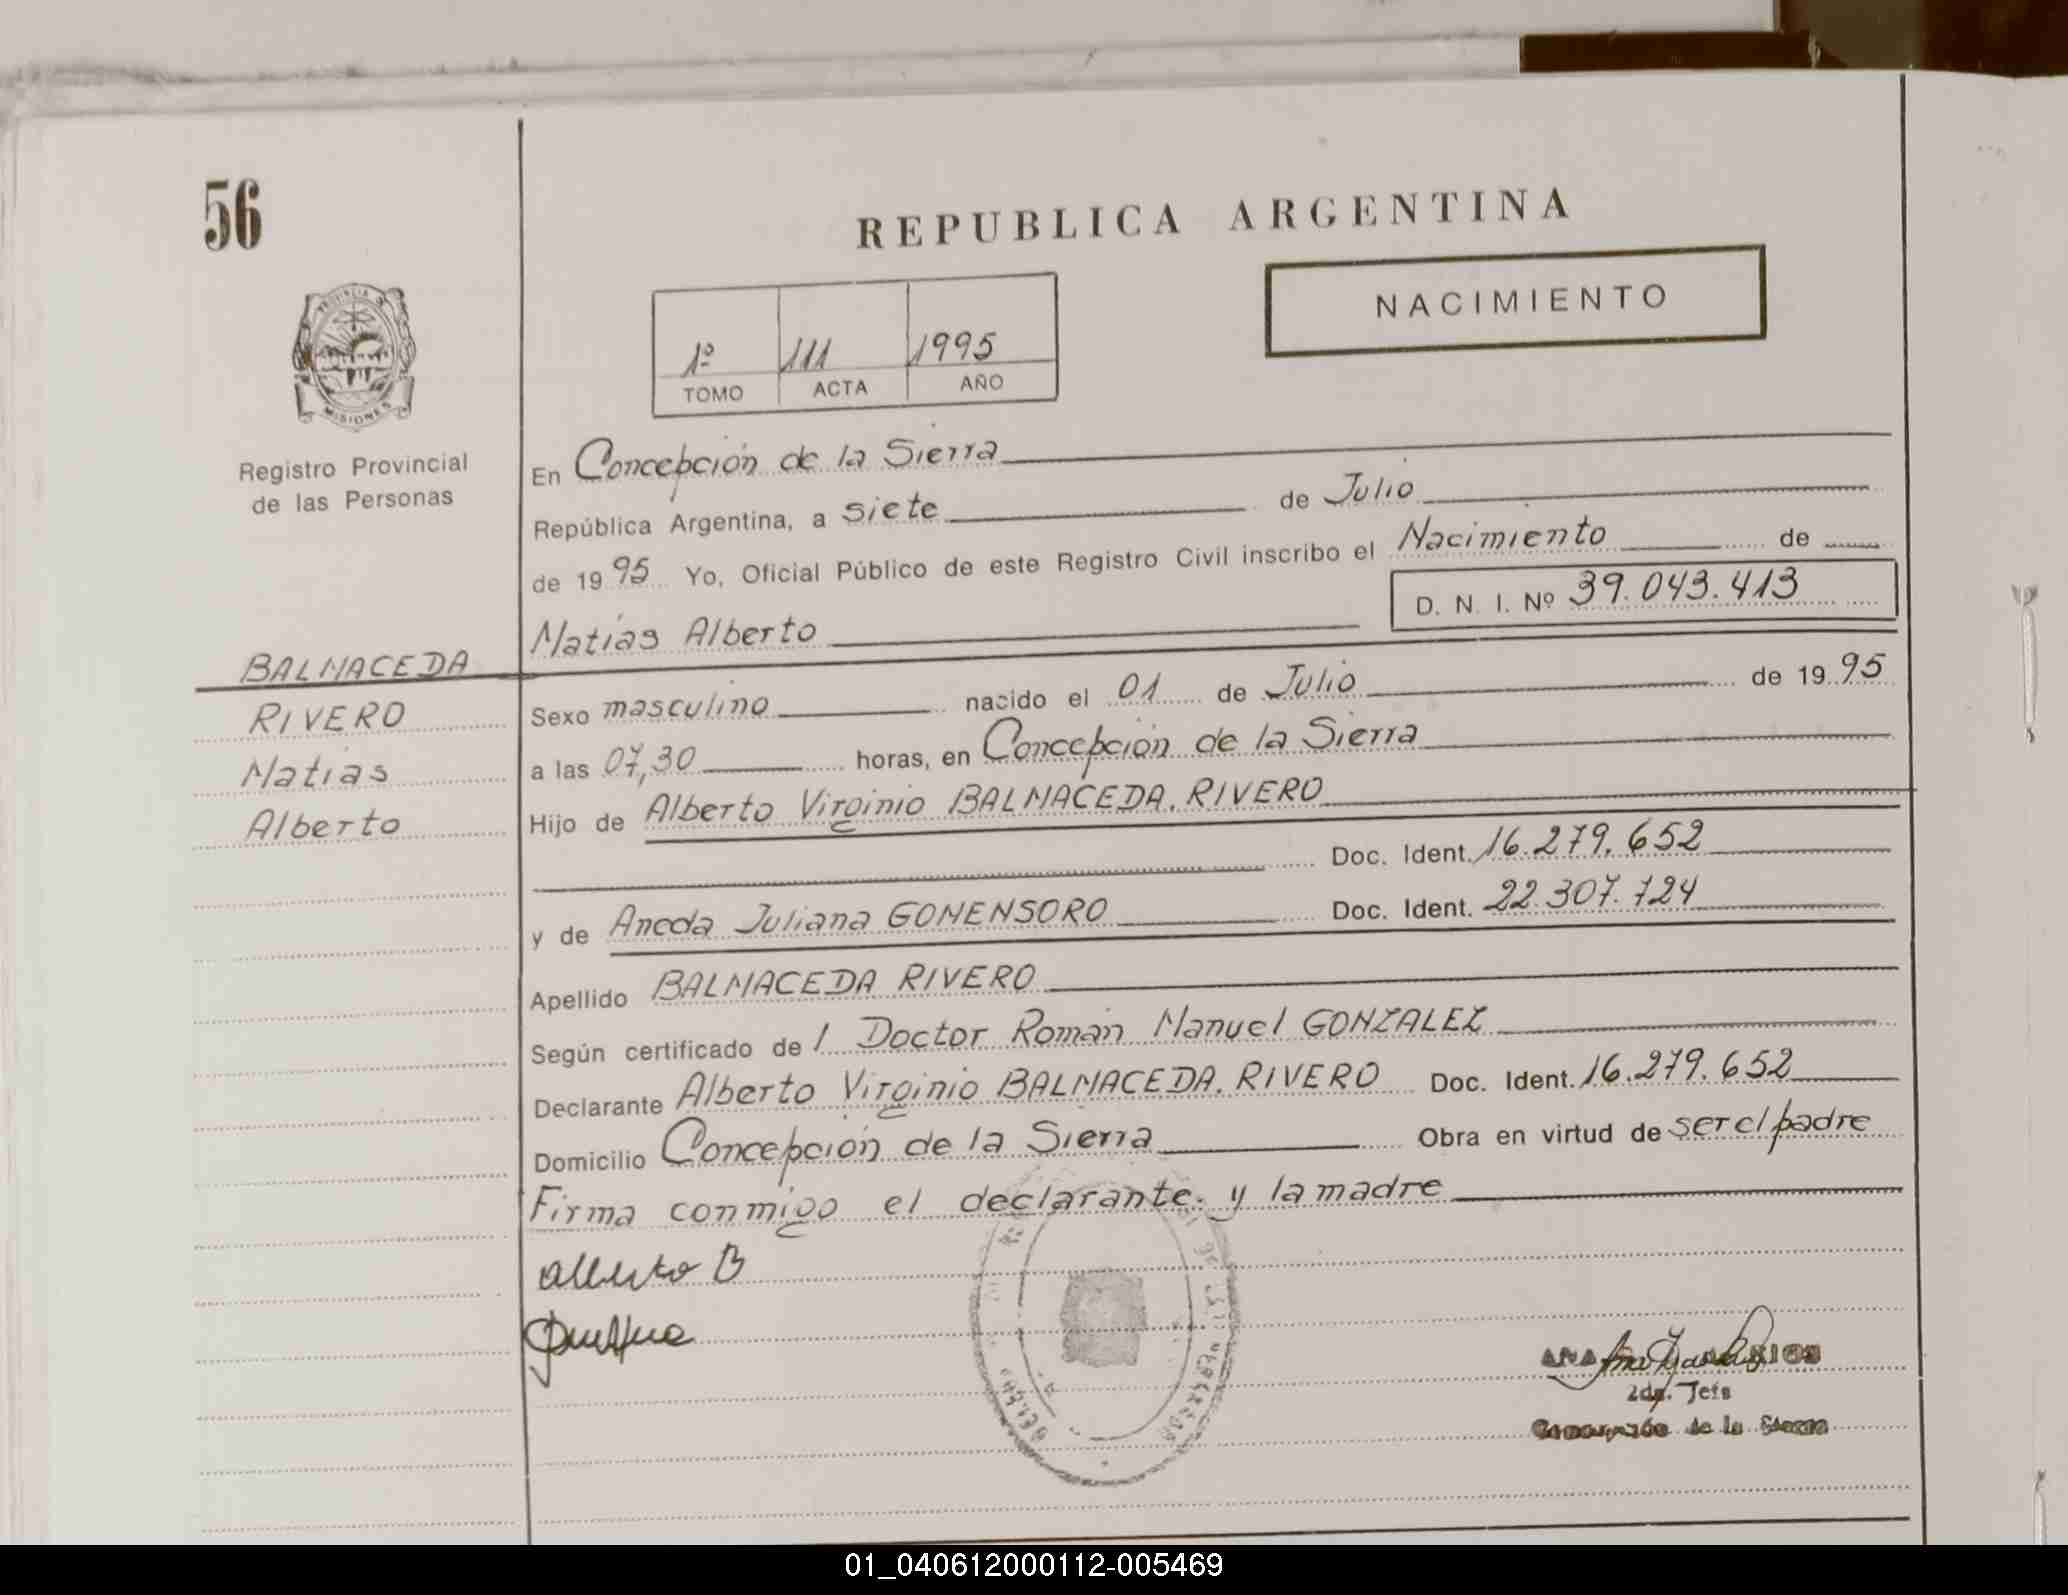 56
REPUBLICA ARGENTINA
NACIMIENTO
1º 111 1995
TOMO ACTA AÑO
PROVINCIA DE MISIONES
Registro Provincial
de las Personas
En Concepción de la Sierra
República Argentina, a siete de Julio
de 1995 Yo, Oficial Público de este Registro Civil inscribo el Nacimiento de
D. N. I. Nº 39.043.413
Matías Alberto
BALMACEDA
RIVERO
Matías
Alberto
Sexo masculino nacido el 01 de Julio de 1995
a las 07,30 horas, en Concepción de la Sierra
Hijo de Alberto Virginio BALMACEDA. RIVERO
Doc. Ident. 16.279.652
y de Juliana GOMENSORO Doc. Ident. 22.307.724
Apellido BALMACEDA RIVERO
Según certificado del Doctor Román Manuel GONZALEZ
Declarante Alberto Virginio BALMACEDA. RIVERO Doc. Ident. 16.279.652
Domicilio Concepción de la Sierra Obra en virtud de ser el padre
Firma conmigo el declarante. y la madre
Alberto B
ANA
2da. Jefa
Concepción de la Sierra
01_040612000112-005469